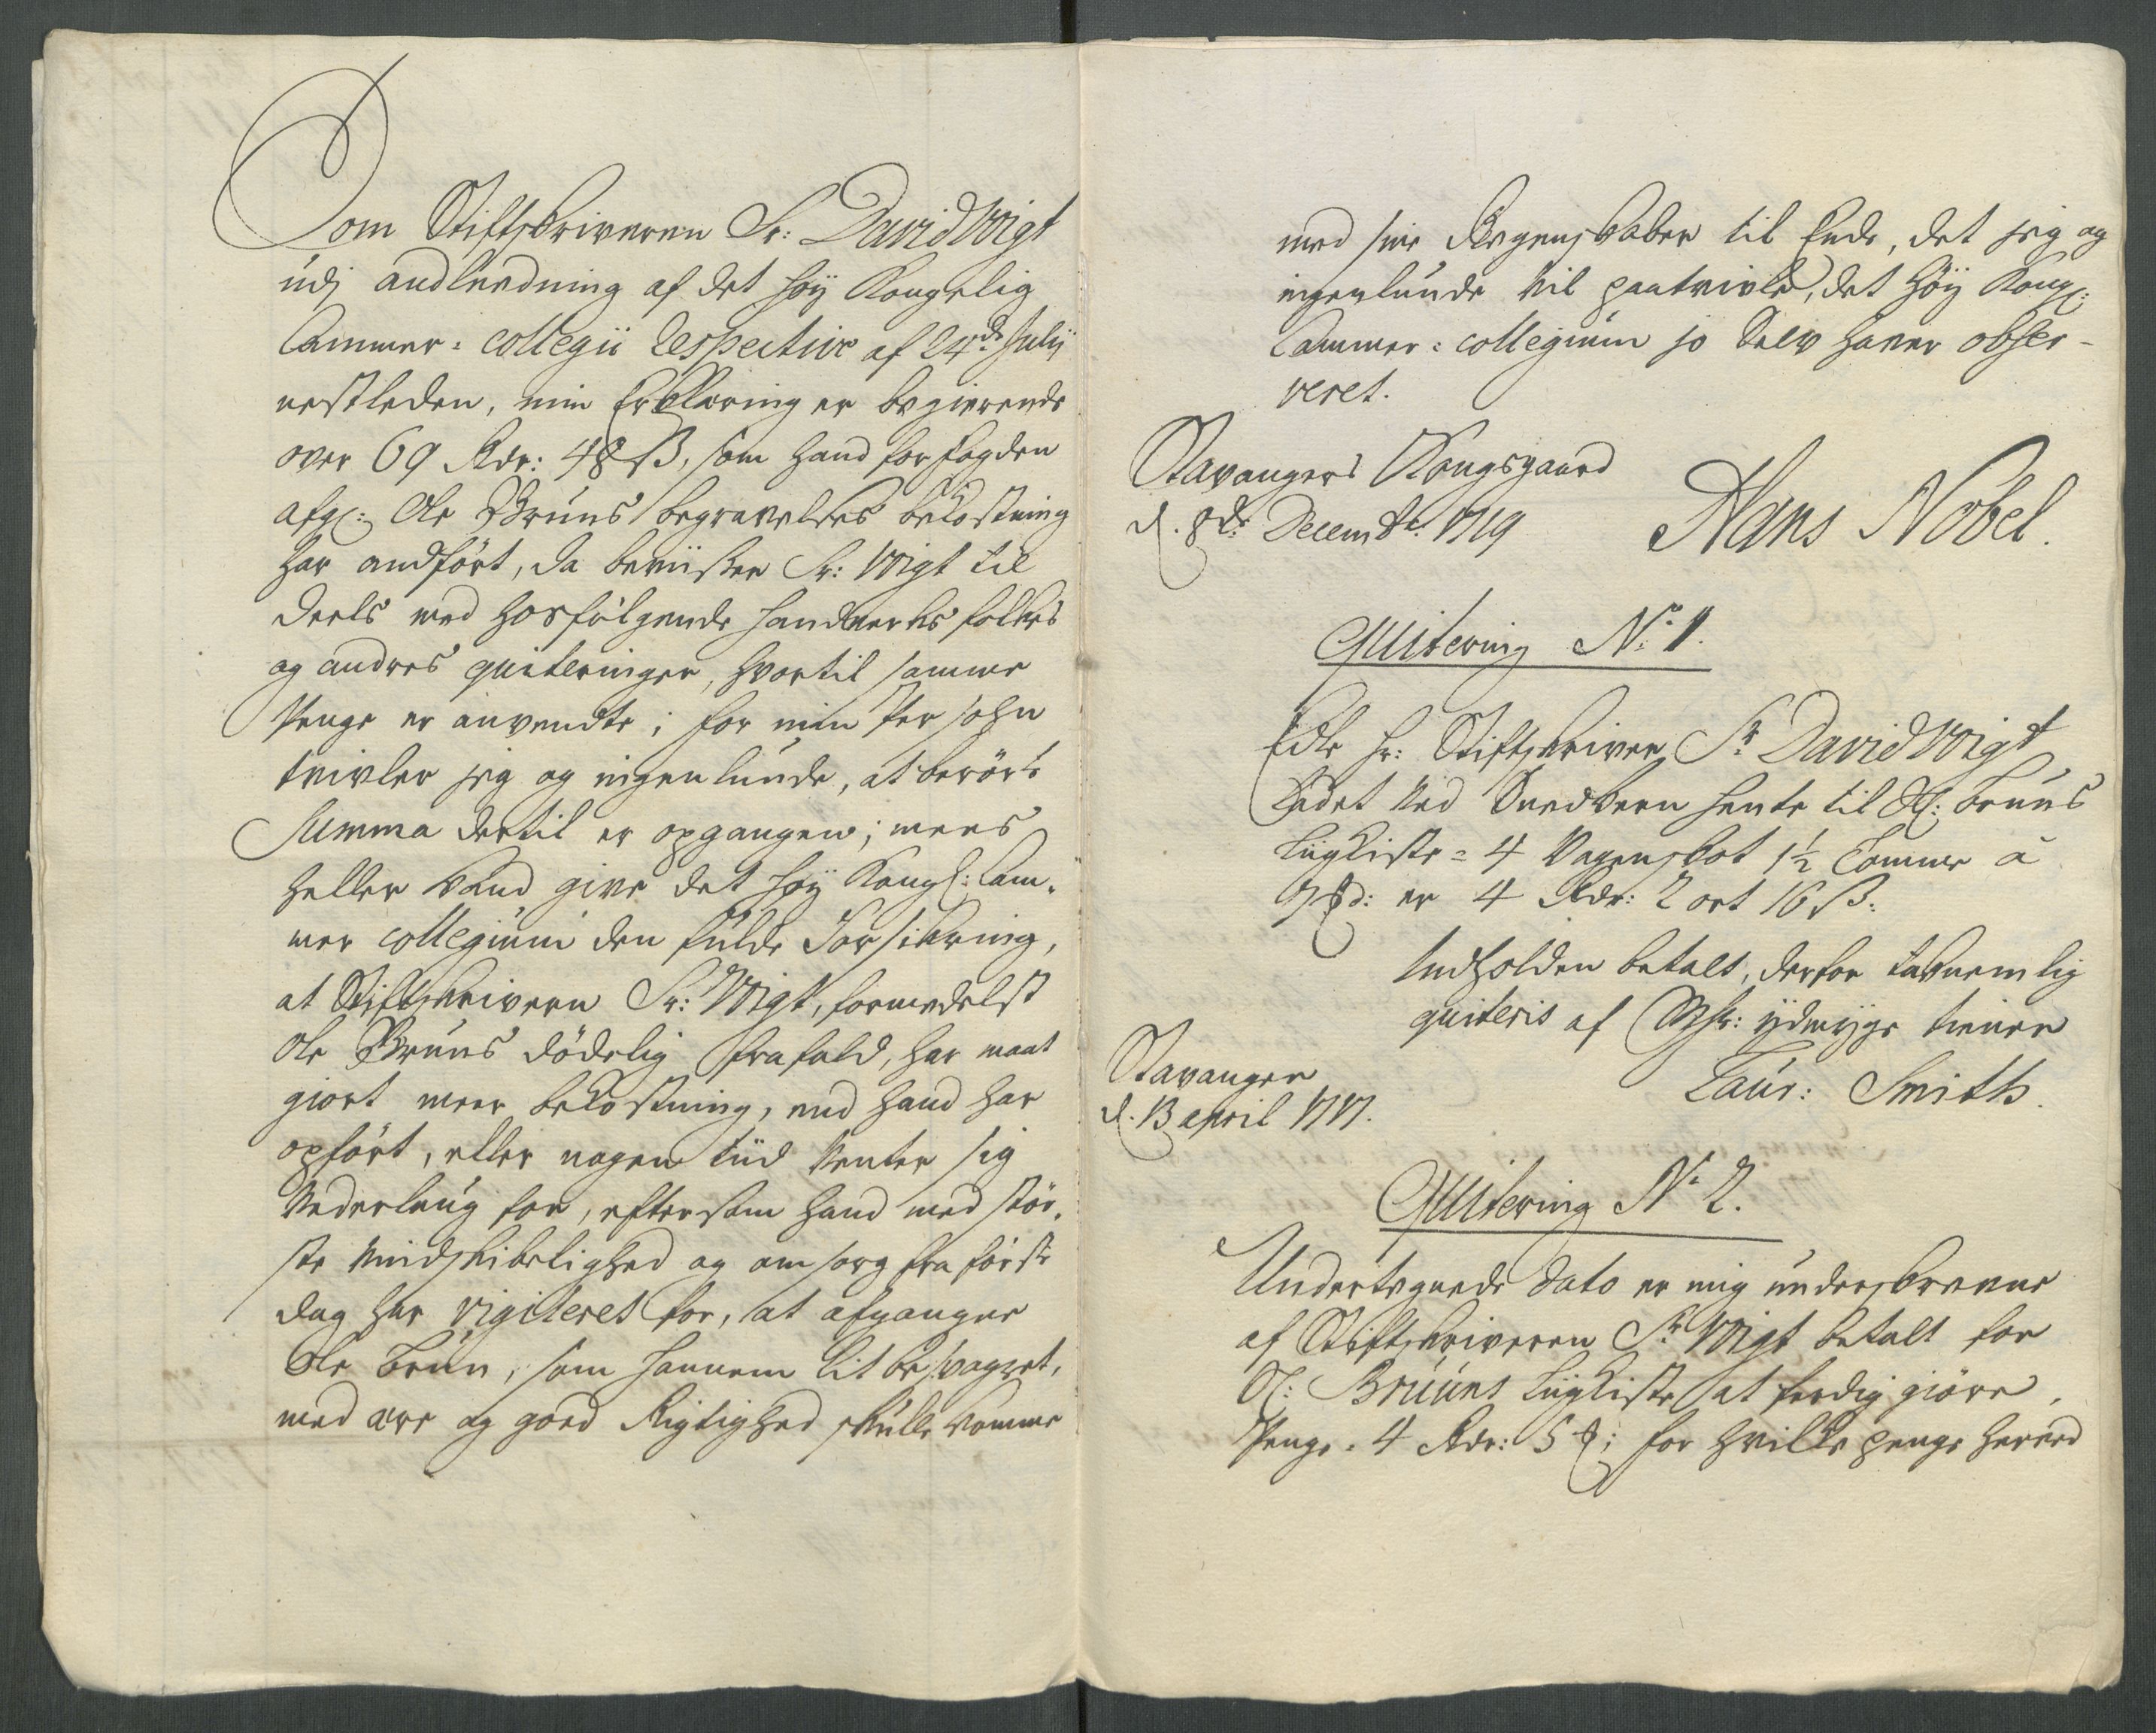 Som Stiftskriveren Sr: David Voigt
udj andleedning af det høÿ Kongelig
Cammer-collegii Respective af 24de Julij
nestleden, min Erklæring er begierende
over 69 Rdr: 48 ß, som hand for fogden
afg: Ole Bruns begravelses bekostning
har andført, da beviisser Sr: Voigt til
deels med hosfølgende handverks folkes
og andres quiteringer, hvortil samme
Penge er anvendte; for min Persohn
tvivler jeg og ingenlunde, at berørte
Summa dertil er opgangen; mens
heller kand give det høÿ Kongl: Cam-
mer collegium den fulde Forsikring,
at Stiftskrivern Sr: Voigt, formedelst
Ole Bruns dødelig frafald, har maat
giort meer bekostning, end hand har
opført, eller nogen tiid venter sig
Vederlaug for, eftersom hand med stør-
ste Vindskibelighed og omsorg fra første
dag har vigileret for, at afgangne
Ole Brun, som hannem lit besvogret,
med ære og goed Rigtighed skulle komme
med sine Regenskaber til Ende, det jeg og
ingenlunde vil paatvivle, det Høÿ Kongl:
Cammer-collegium jo Selv haver obser-
veret.
Stavangers Kongsgaard
d. 8de Decembr: 1719
Hans Nobel.
Quitering No: 1.
Edle hr: Stiftskriver Sr David Voigt
Ladet ved Snedkern hente til Sl: Bruns
Liigkiste - 4 Vognskot 1½ Tomme a
7 ℔d: er 4 Rdr: 2 ort 16 ß:
Indholden betalt, derfor taknemlig
quiteris af Msr: ÿdmyge tiener
Laur: Smith.
Stavanger
d. 13 april 1717.
Quitering No 2.
Undertegnede Dato er mig underskrevne
af Stiftskriveren Sr Voigt betalt for
Sl: Bruuns Liigkiste at ferdig giøre,
Penge - 4 Rdr: 5 ℔; for hvilke penge herved